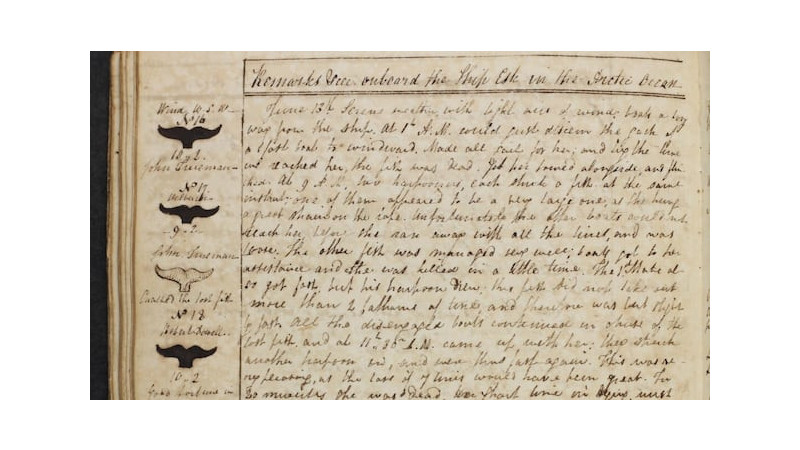 Remarks &cc onboard the Ship Esk in the Arctic Ocean
Wind W.S.W.
No 16
10 - 2
John Trueman
No 17
9 - 2
John Trueman
Caused the lost fish
No 18
10 - 2
June 13th Serene weather with light airs of wind, took a boy
way from the ship. At 1h A.M. could just discern the jack of
a fast boat to windward. Made all sail for her, and by the time
we reached her, the fish was dead. Got her towed alongside, and flin
ched. At 9 A.M. two harpooners, each struck a fish at the same
instant - one of them appeared to be a very large one, as she hung
a great strain on the rope. Unfortunately the other boats could not
reach her, before she ran away with all the lines, and was
loose. The other fish was managed very well; boats got to her
assistance and she was killed in a little time. The Mate al-
so got fast, but his harpoon drew, the fish did not take out
more than 2 fathoms of line, and therefore was but slight
ly fast. All the disengaged boats continued in chase of the
lost fish, and at 11h 30m A.M. came up with her; they struck
another harpoon in, and were thus fast again. This was ve-
ry pleasing, as the loss of lines would have been great. In
20 minutes she was dead. Our short time in flying, must